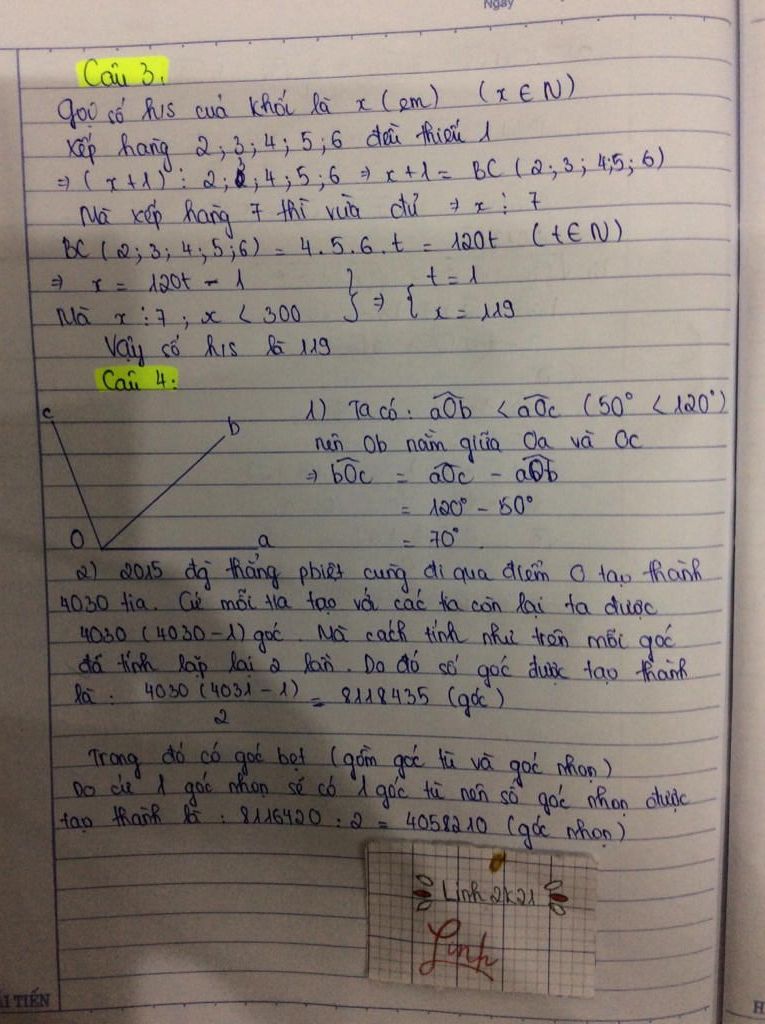 Ngày
Câu 3:
Gọi số h/s của khối là x (em) (x ∈ N)
Xếp hàng 2; 3; 4; 5; 6 đều thiếu 1
⇒ (x+1) ⋮ 2; 3; 4; 5; 6 ⇒ x+1 = BC (2; 3; 4; 5; 6)
Mà xếp hàng 7 thì vừa đủ ⇒ x ⋮ 7
BC (2; 3; 4; 5; 6) = 4.5.6.t = 120t (t ∈ N)
⇒ x = 120t - 1 } ⇒ { t = 1
Mà x ⋮ 7; x < 300 x = 119
Vậy số h/s là 119
Câu 4:
1) Ta có: aÔb < aÔc (50° < 120°)
nên Ob nằm giữa Oa và Oc
⇒ bÔc = aÔc - aÔb
= 120° - 50°
= 70°
c
b
O
a
2) 2015 đg thẳng pbiệt cùng đi qua điểm O tạo thành
4030 tia. Cứ mỗi tia tạo với các tia còn lại ta được
4030 (4030-1) góc. Mà cách tính như trên mỗi góc
đã tính lặp lại 2 lần. Do đó số góc được tạo thành
là: 4030 (4031-1) / 2 = 8118435 (góc)
Trong đó có góc bẹt (gồm góc tù và góc nhọn)
Do cứ 1 góc nhọn sẽ có 1 góc tù nên số góc nhọn được
tạo thành là: 8116420 : 2 = 4058210 (góc nhọn)
Linh 2k21
Linh
ẢI TIẾN
H